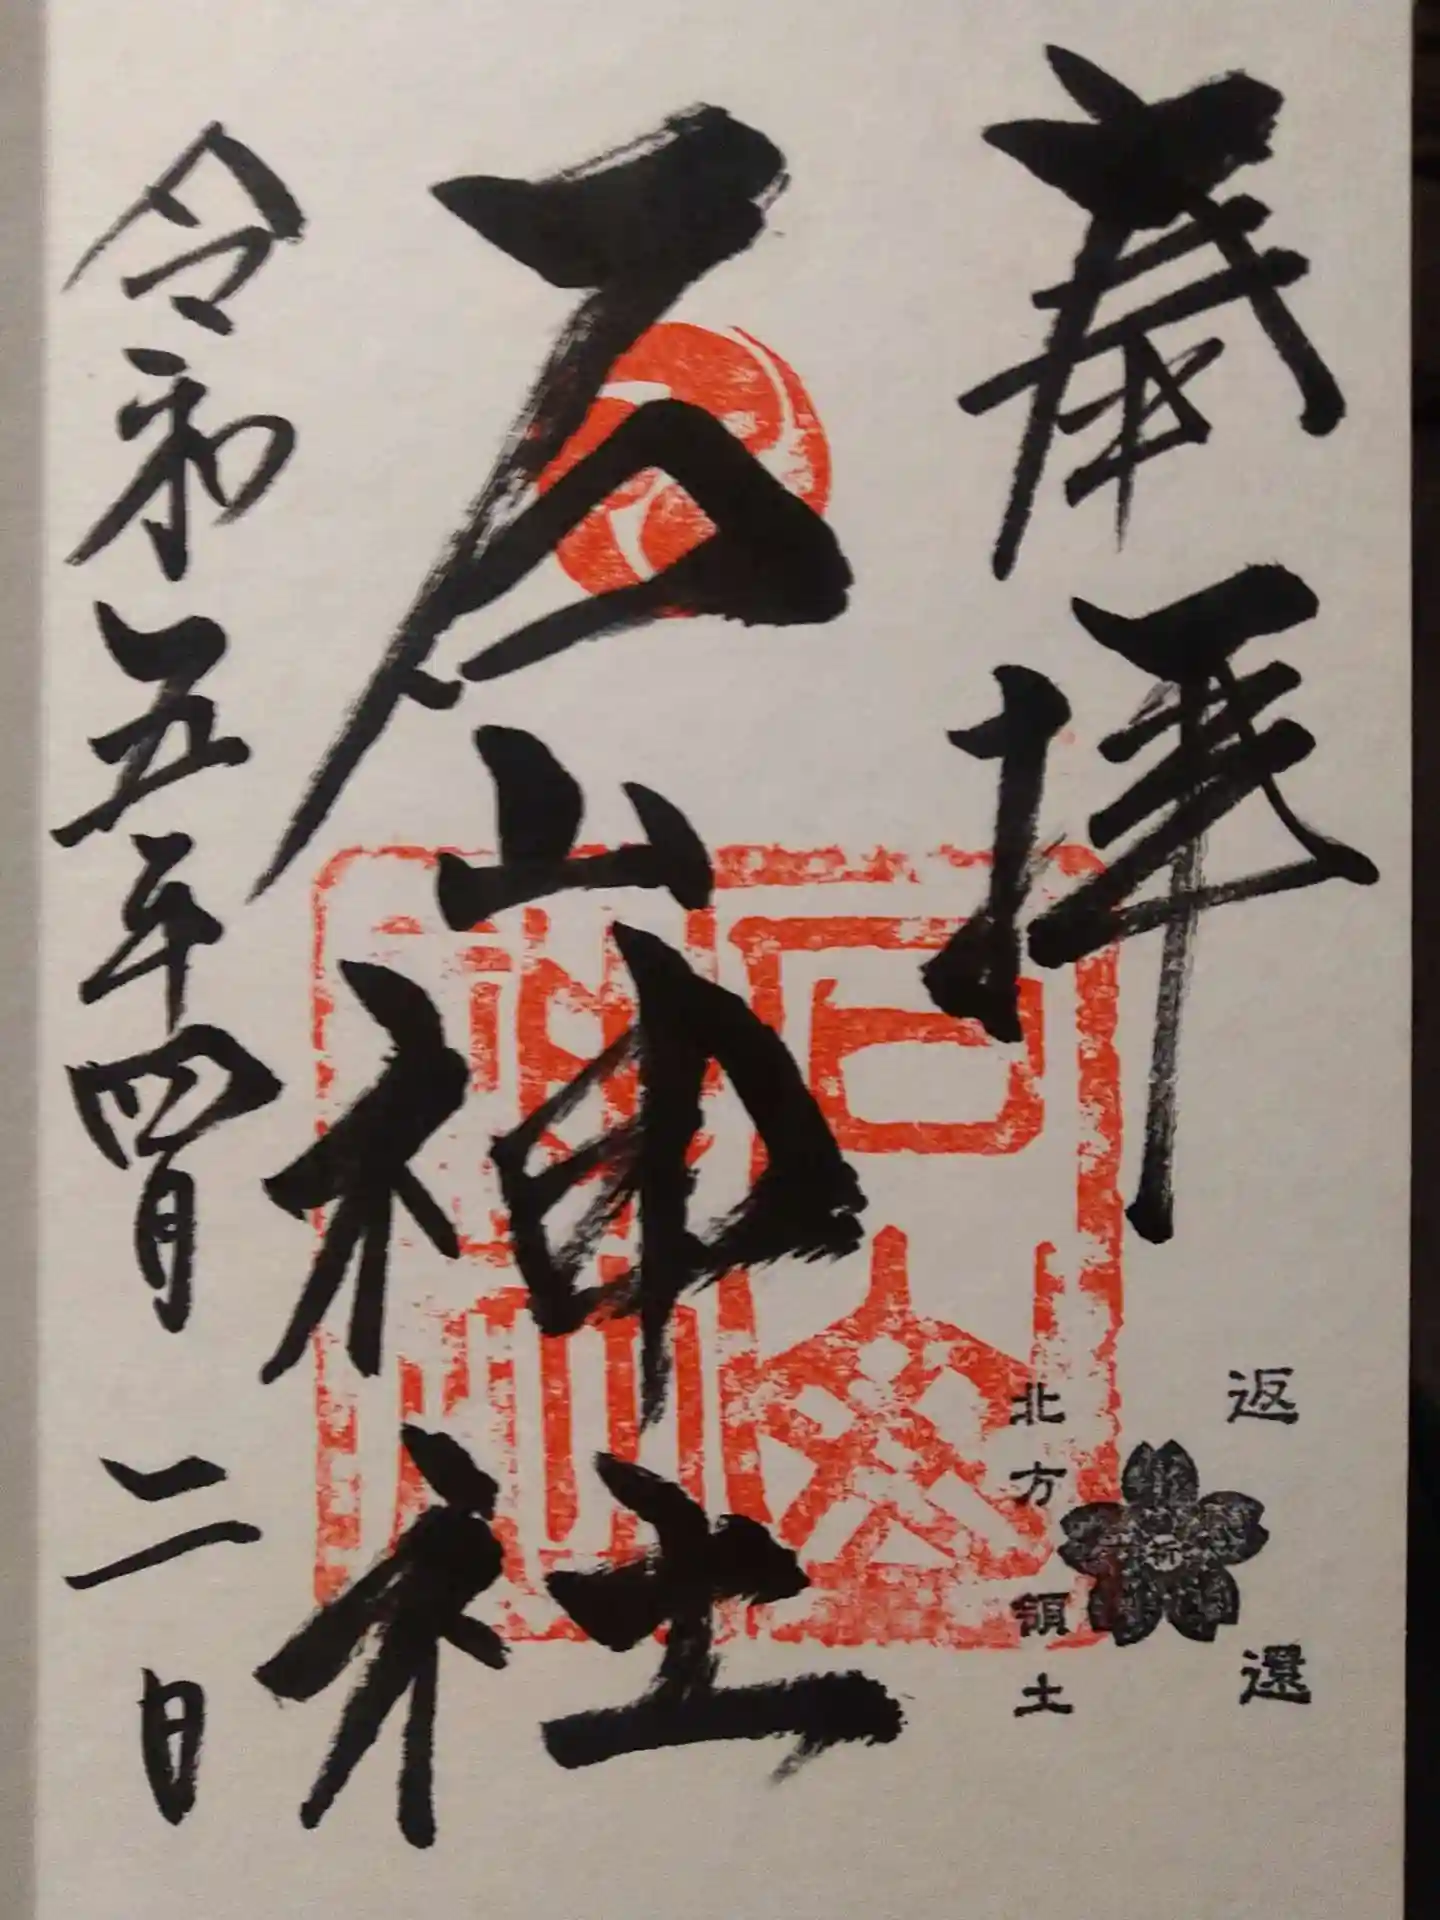 奉拝
返還
祈
北方領土
石山神社
石山神社
令和五年四月二日